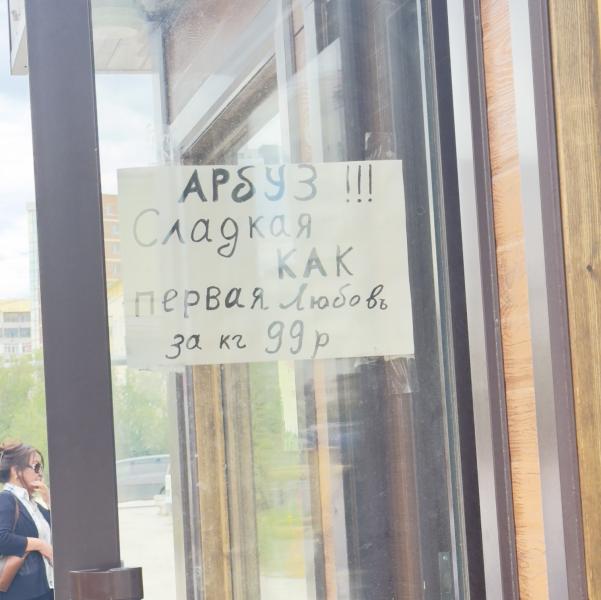 АРБУЗ !!!
Сладкая
КАК
первая Любовь
за кг 99 р